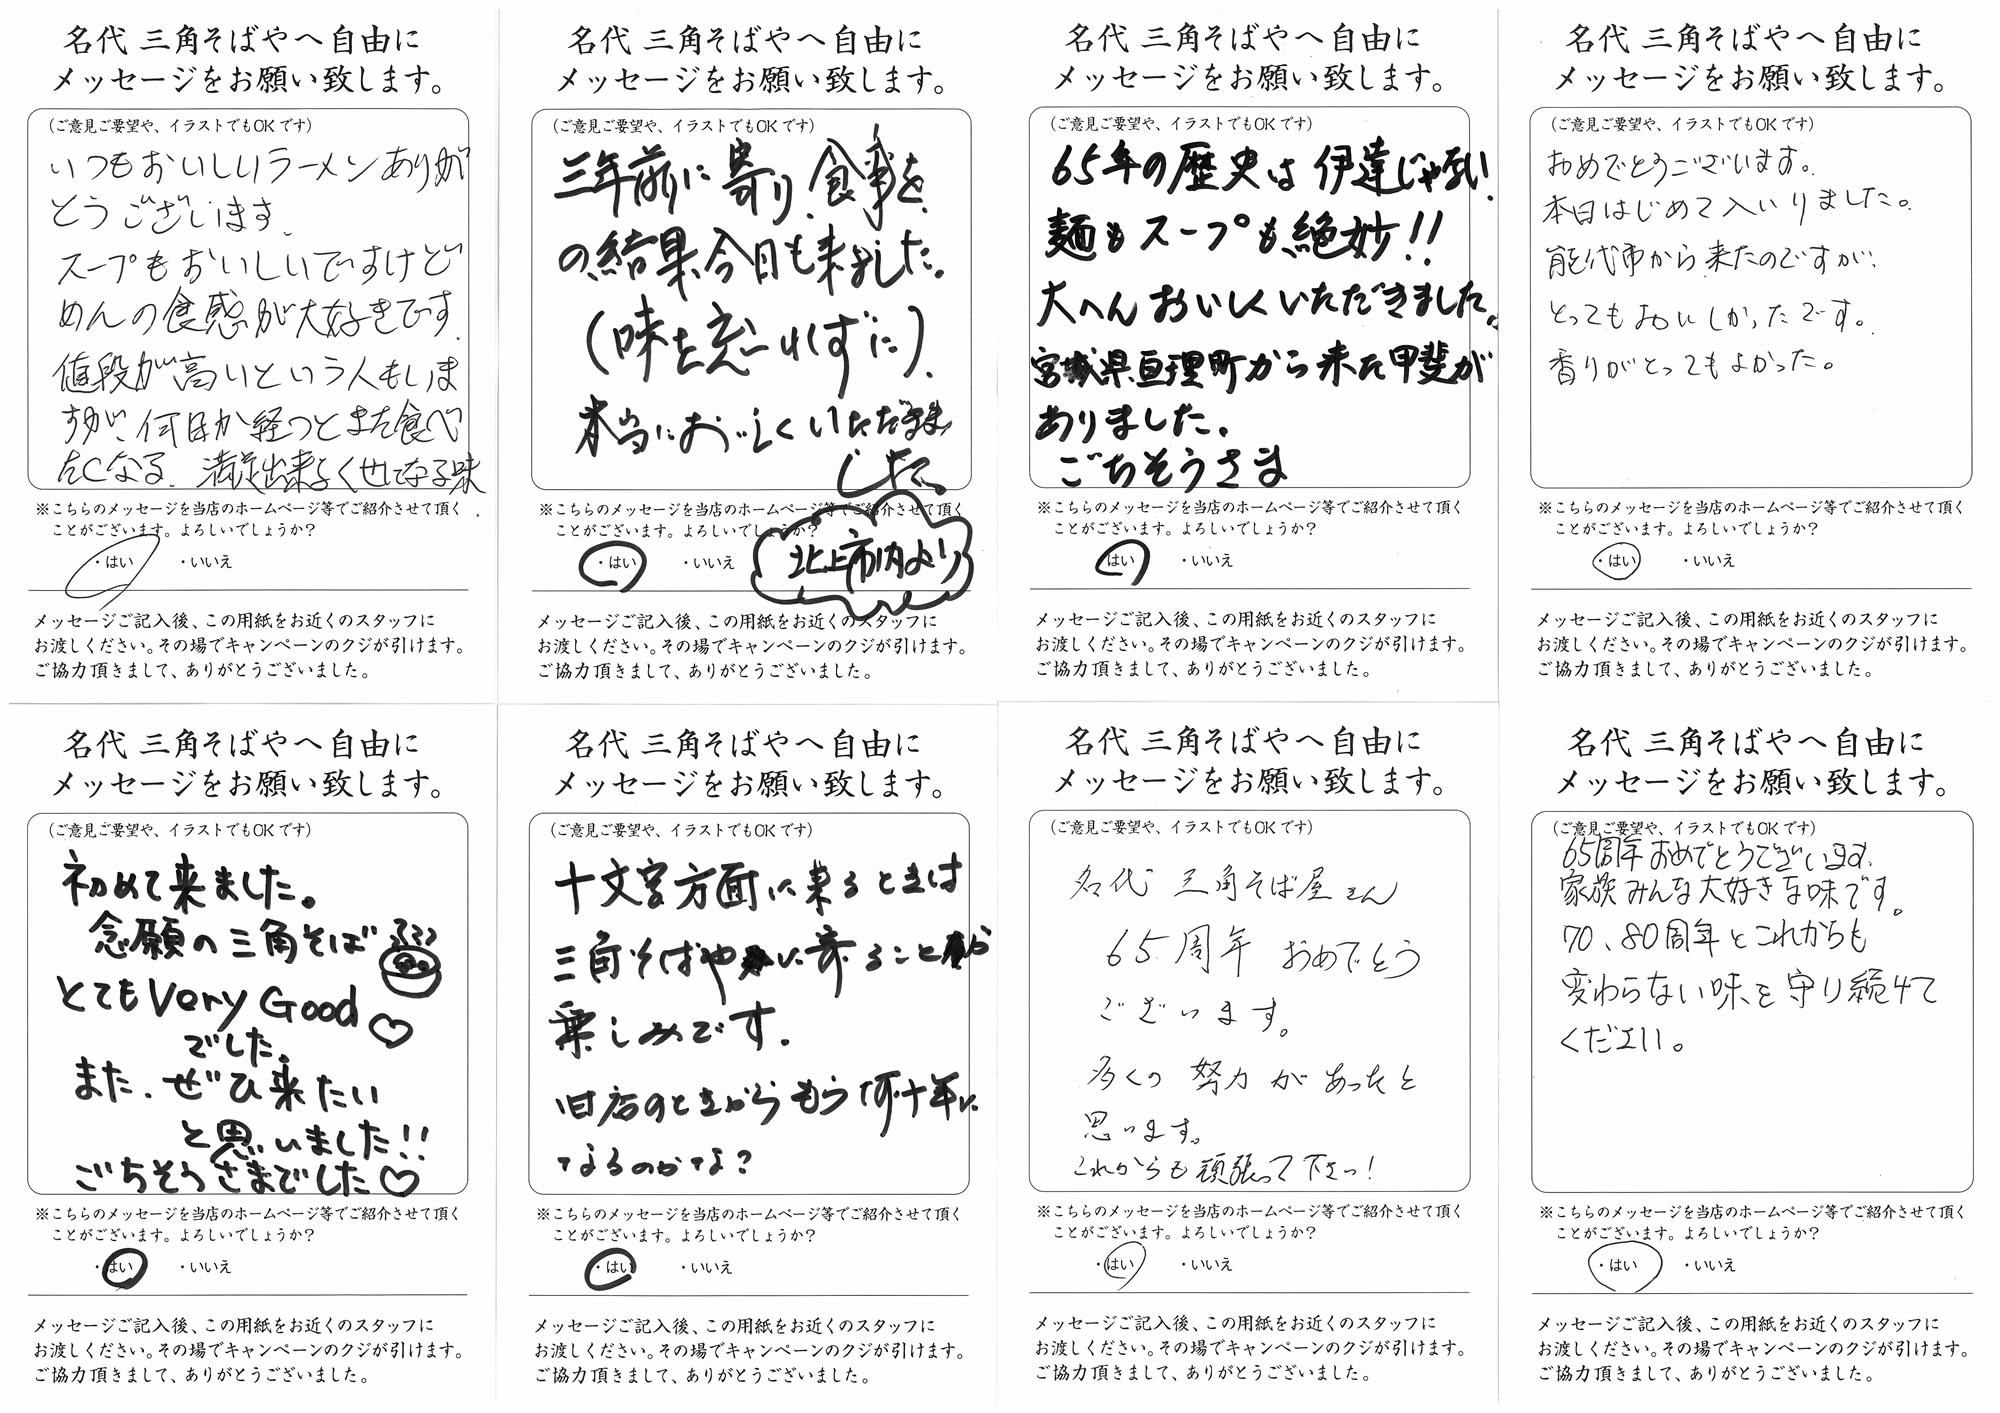 名代 三角そばやへ自由に
メッセージをお願い致します。
(ご意見ご要望や、イラストでもOKです)
いつもおいしいラーメンありが
とうございます.
スープもおいしいですけど
めんの食感が大好きです.
値段が高いという人もいま
すが、何日か経つとまた食べ
たくなる. 満足出来るくせになる味
※こちらのメッセージを当店のホームページ等でご紹介させて頂く
ことがございます。よろしいでしょうか？
・はい ・いいえ
メッセージご記入後、この用紙をお近くのスタッフに
お渡しください。その場でキャンペーンのクジが引けます。
ご協力頂きまして、ありがとうございました。
名代 三角そばやへ自由に
メッセージをお願い致します。
(ご意見ご要望や、イラストでもOKです)
三年前に寄り、食事を
の結果今日も来ました。
(味を忘れずに).
本当においしくいただきま
した。
※こちらのメッセージを当店のホームページ等でご紹介させて頂く
ことがございます。よろしいでしょうか？
・はい ・いいえ
北上市内より
メッセージご記入後、この用紙をお近くのスタッフに
お渡しください。その場でキャンペーンのクジが引けます。
ご協力頂きまして、ありがとうございました。
名代 三角そばやへ自由に
メッセージをお願い致します。
(ご意見ご要望や、イラストでもOKです)
65年の歴史は伊達じゃない.
麺もスープも絶妙!!
大へんおいしくいただきました。
宮城県亘理町から来た甲斐が
ありました.
ごちそうさま
※こちらのメッセージを当店のホームページ等でご紹介させて頂く
ことがございます。よろしいでしょうか？
・はい ・いいえ
メッセージご記入後、この用紙をお近くのスタッフに
お渡しください。その場でキャンペーンのクジが引けます。
ご協力頂きまして、ありがとうございました。
名代 三角そばやへ自由に
メッセージをお願い致します。
(ご意見ご要望や、イラストでもOKです)
おめでとうございます。
本日はじめて入いりました。
能代市から来たのですが、
とってもおいしかったです。
香りがとってもよかった。
※こちらのメッセージを当店のホームページ等でご紹介させて頂く
ことがございます。よろしいでしょうか？
・はい ・いいえ
メッセージご記入後、この用紙をお近くのスタッフに
お渡しください。その場でキャンペーンのクジが引けます。
ご協力頂きまして、ありがとうございました。
名代 三角そばやへ自由に
メッセージをお願い致します。
(ご意見ご要望や、イラストでもOKです)
初めて来ました。
念願の三角そば
とてもVery Good
でした.
また.ぜひ来たい
と思いました!!
ごちそうさまでした♡
※こちらのメッセージを当店のホームページ等でご紹介させて頂く
ことがございます。よろしいでしょうか？
・はい ・いいえ
メッセージご記入後、この用紙をお近くのスタッフに
お渡しください。その場でキャンペーンのクジが引けます。
ご協力頂きまして、ありがとうございました。
名代 三角そばやへ自由に
メッセージをお願い致します。
(ご意見ご要望や、イラストでもOKです)
十文字方面に来るときは
三角そばやに寄ること
楽しみです.
旧店のときからもう何十年に
なるのかな？
※こちらのメッセージを当店のホームページ等でご紹介させて頂く
ことがございます。よろしいでしょうか？
・はい ・いいえ
メッセージご記入後、この用紙をお近くのスタッフに
お渡しください。その場でキャンペーンのクジが引けます。
ご協力頂きまして、ありがとうございました。
名代 三角そばやへ自由に
メッセージをお願い致します。
(ご意見ご要望や、イラストでもOKです)
名代 三角そば屋さん
65周年 おめでとう
ございます。
多くの努力があったと
思います。
これからも頑張って下さい!
※こちらのメッセージを当店のホームページ等でご紹介させて頂く
ことがございます。よろしいでしょうか？
・はい ・いいえ
メッセージご記入後、この用紙をお近くのスタッフに
お渡しください。その場でキャンペーンのクジが引けます。
ご協力頂きまして、ありがとうございました。
名代 三角そばやへ自由に
メッセージをお願い致します。
(ご意見ご要望や、イラストでもOKです)
65周年おめでとうございます.
家族みんな大好きな味です。
70、80周年とこれからも
変わらない味を守り続けて
ください。
※こちらのメッセージを当店のホームページ等でご紹介させて頂く
ことがございます。よろしいでしょうか？
・はい ・いいえ
メッセージご記入後、この用紙をお近くのスタッフに
お渡しください。その場でキャンペーンのクジが引けます。
ご協力頂きまして、ありがとうございました。